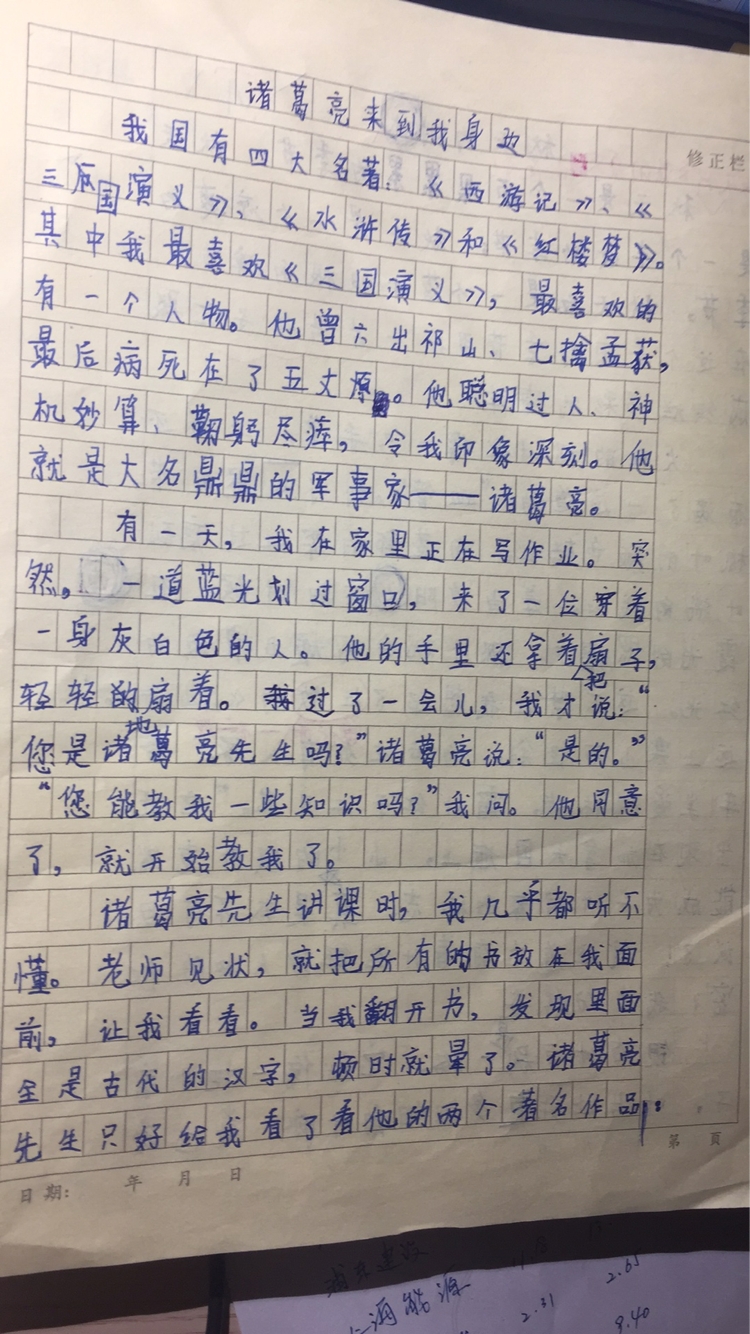 诸葛亮来到我身边
修正栏
我国有四大名著：《西游记》、《
三国演义》、《水浒传》和《红楼梦》。
其中我最喜欢《三国演义》，最喜欢的
有一个人物。他曾六出祁山、七擒孟获，
最后病死在了五丈原。他聪明过人、神
机妙算、鞠躬尽瘁，令我印像深刻。他
就是大名鼎鼎的军事家——诸葛亮。
有一天，我在家里正在写作业。突
然，一道蓝光划过窗口，来了一位穿着
一身灰白色的人。他的手里还拿着把扇子，
轻轻地扇着。过了一会儿，我才说：“
您是诸葛亮先生吗？”诸葛亮说：“是的。”
“您能教我一些知识吗？”我问。他同意
了，就开始教我了。
诸葛亮先生讲课时，我几乎都听不
懂。老师见状，就把所有的书放在我面
前，让我看看。当我翻开书，发现里面
全是古代的汉字，顿时就晕了。诸葛亮
先生只好给我看了看他的两个著名作品：
第 页
日期： 年 月 日
上海能源
2.31
2.65
8.40